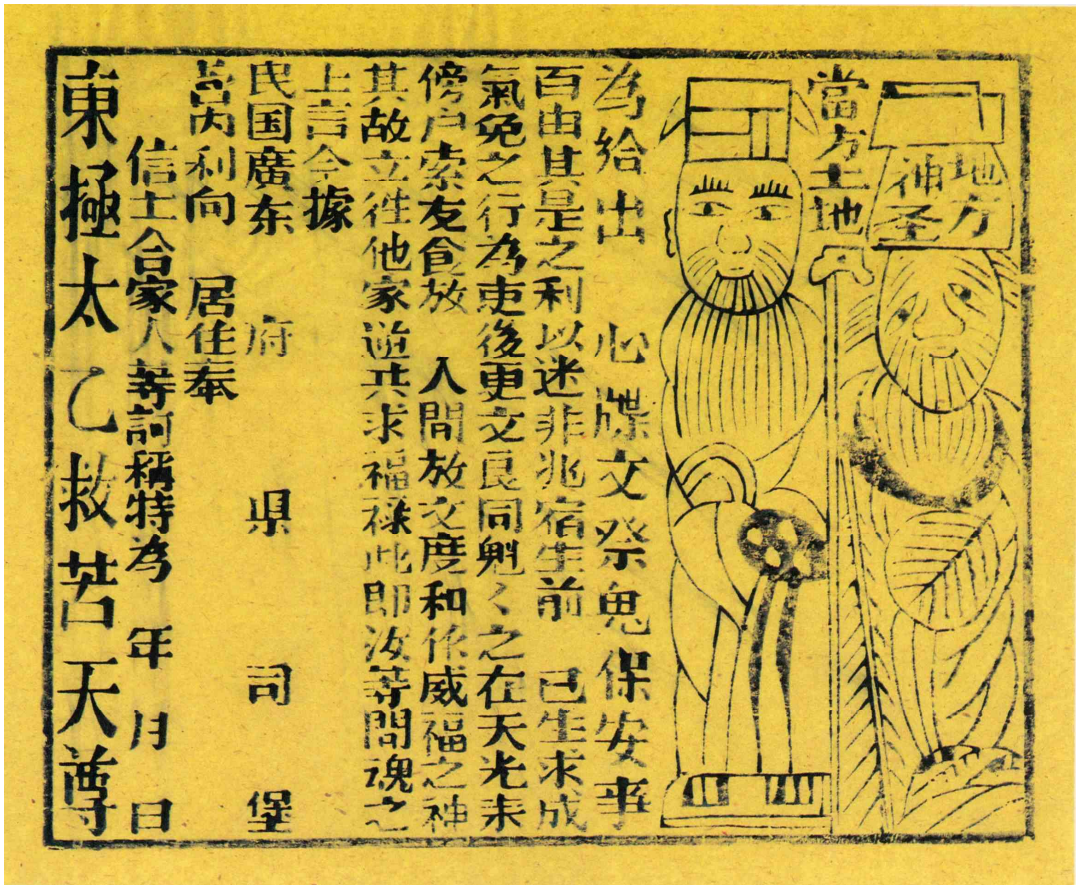 地方
神圣
當方土地
為給出 心牒文祭鬼保安事
百由其是之利以迷非兆宿生前 己生求成
氣免之行為吏後更文良同魁々之在天光未
傍户索友食放 人間放文度和作威福之神
其故立往他家逆共求福禄此即汝等問魂之
上言今據
民国廣东 府 県 司 堡
利向 居住奉
信士合家人等訶稱特為 年 月 日
東極太乙救苦天尊